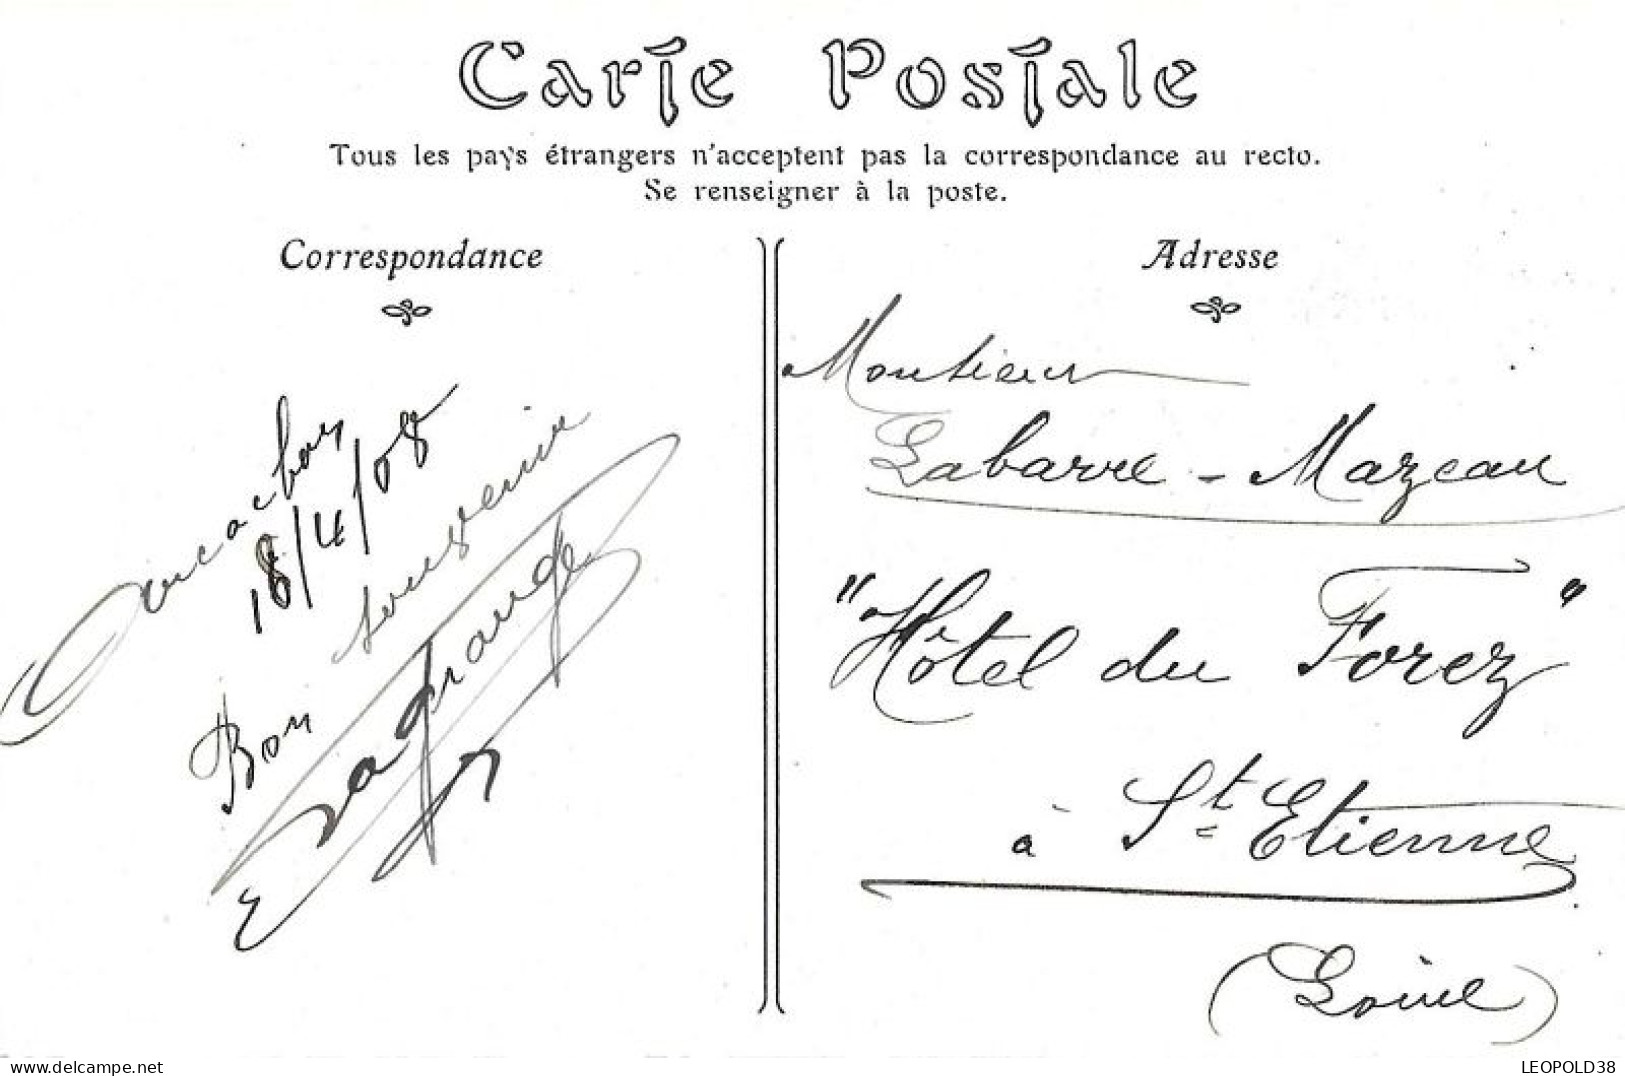 Carte Postale
Tous les pays étrangers n'acceptent pas la correspondance au recto.
Se renseigner à la poste.
Correspondance
18/4/08
Bon souvenir
Adresse
Monsieur
Labarre - Mazeau
"Hôtel du Forez"
à St Etienne
(Loire)
delcampe.net
LEOPOLD38